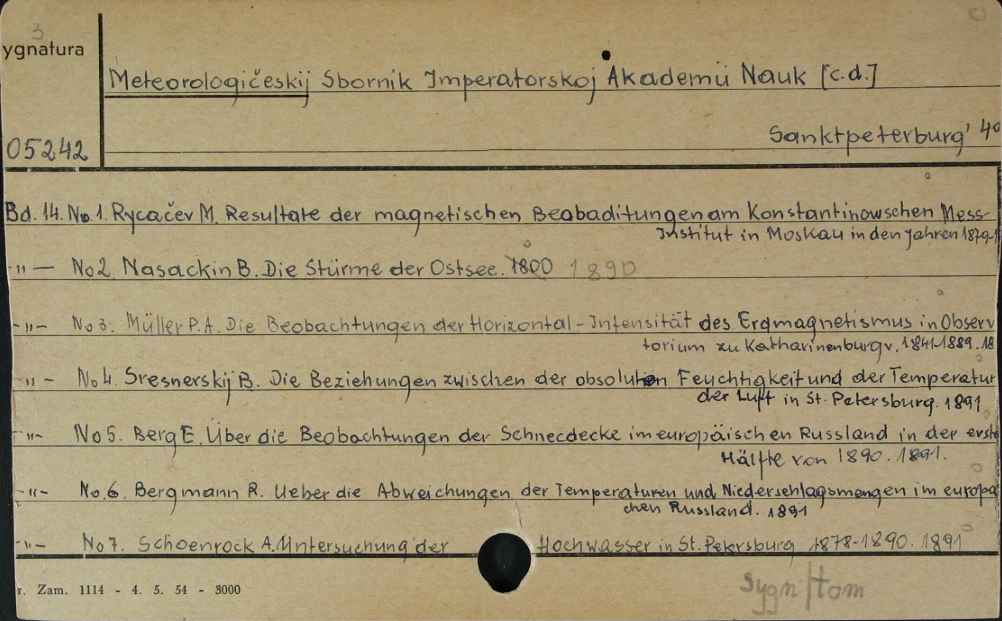 3
ygnatura
Meteorologičeskij Sbornik Imperatorskoj Akademii Nauk [c.d.]
05242
Sanktpeterburg' 4°
Bd. 14. No 1. Rycačev M. Resultate der magnetischen Beobaditungen am Konstantinowschen Mess-
Institut in Moskau in den Jahren 1879-1
-"- No 2. Nasackin B. Die Stürme der Ostsee. 1800 1890
-"- No 3. Müller P.A. Die Beobachtungen der Horizontal-Intensität des Erdmagnetismus in Observ
torium zu Katharinenburg v. 1841-1889. 18
-"- No 4. Sresnerskij B. Die Beziehungen zwischen der absoluten Feuchtigkeit und der Temperatur
der Luft in St. Petersburg. 1891
-"- No 5. Berg E. Über die Beobachtungen der Schneedecke im europäischen Russland in der erste
Hälfte von 1890. 1891.
-"- No. 6. Bergmann R. Ueber die Abweichungen der Temperaturen und Niederschlagsmengen im europä
chen Russland. 1891
-"- No 7. Schoenrock A. Untersuchung der Hochwasser in St. Petersburg 1878-1890. 1891
r. Zam. 1114 - 4. 5. 54 - 3000
Sygn/tom